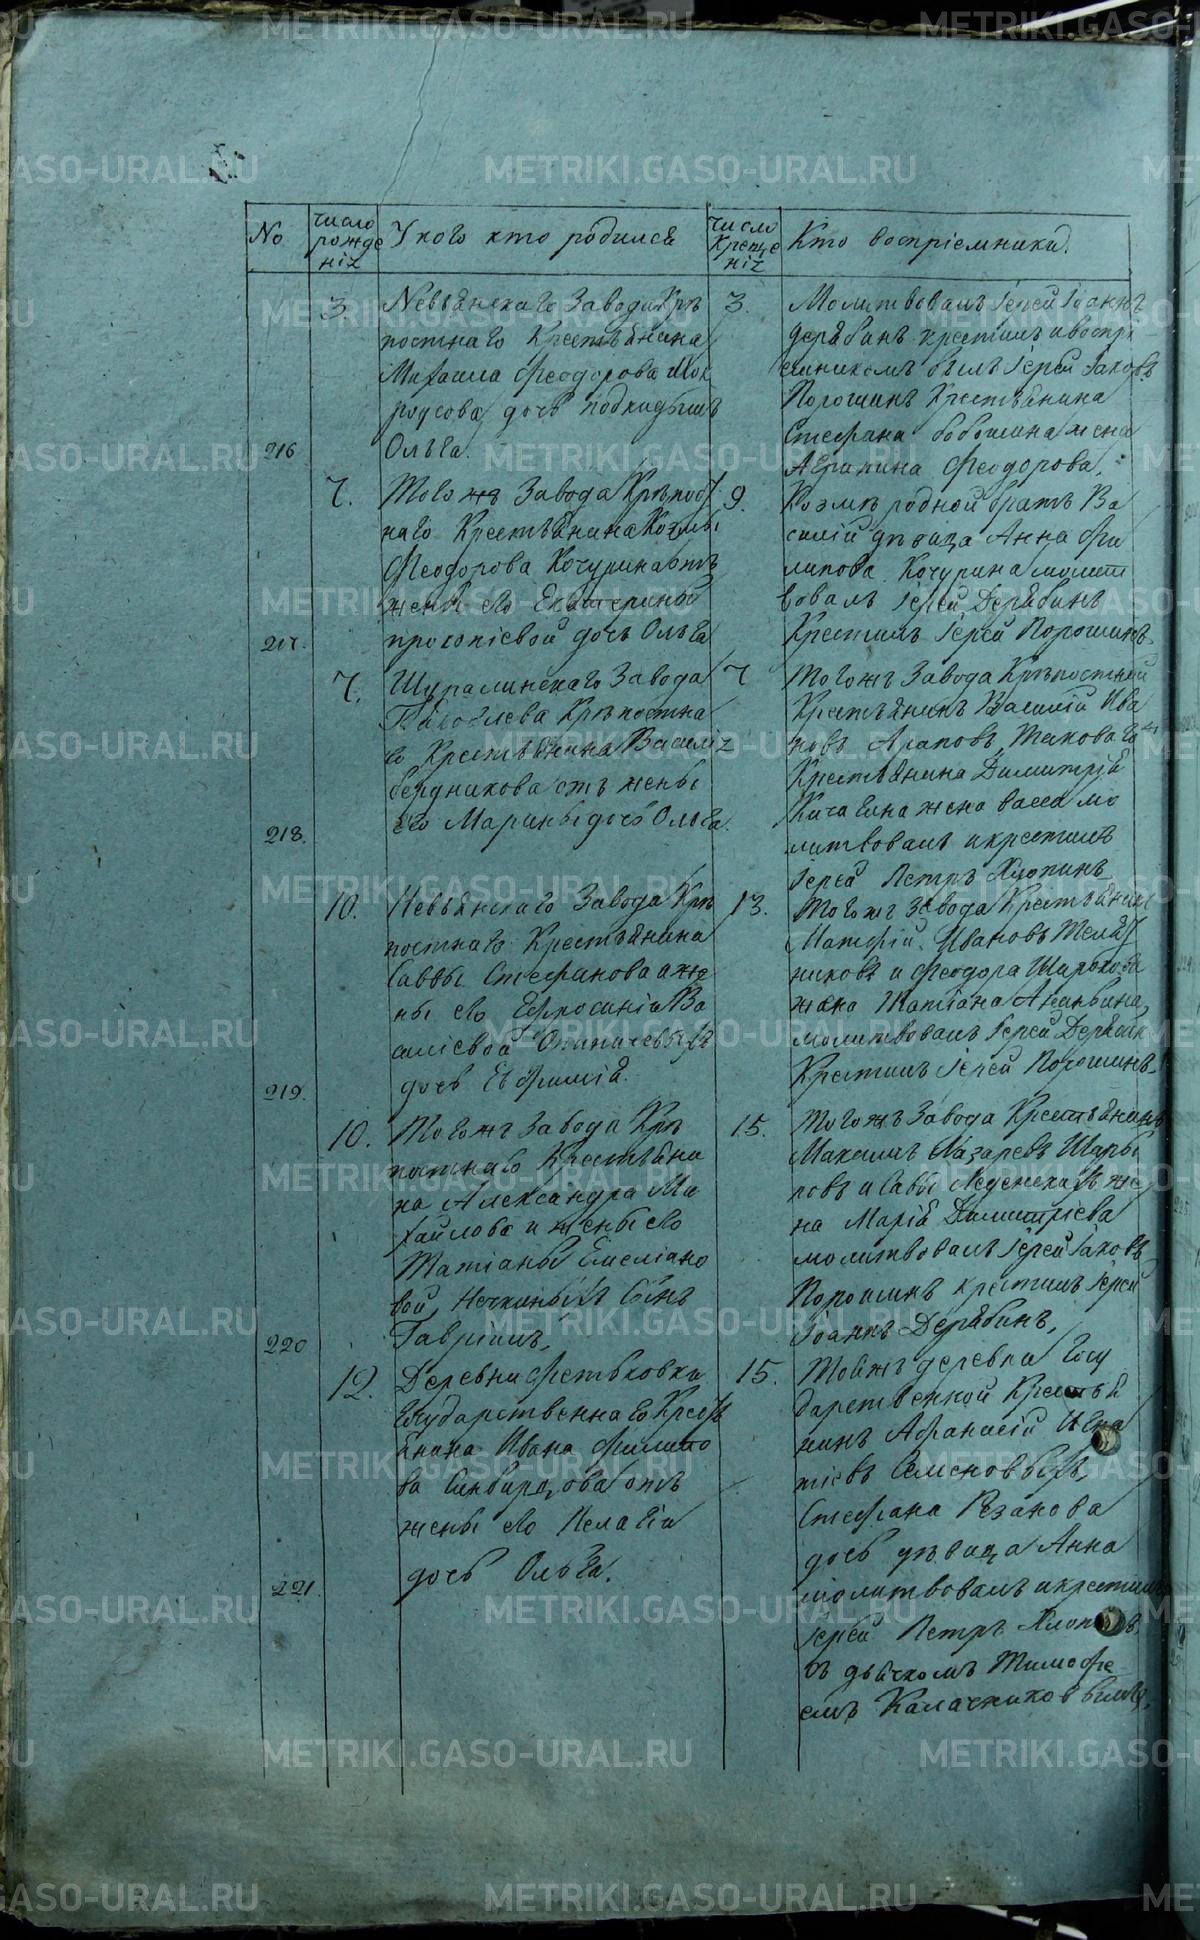 No
число рожденія
У кого кто родился
число крещенія
Кто восприемники.
3
Невьянскаго Завода Крѣ
постнаго Крестьянина
Михаила Феодорова Мок
роусова дочь подкидышъ
216
Ольга.
3.
Молитвовалъ Іерей Іоаннъ
Дерябинъ крестилъ и воспрі
емникомъ былъ Іерей Іаковъ
Порошинъ Крестьянина
Стефана жена
Агрипина Феодорова.
7.
Тогожъ Завода Крѣпост
наго Крестьянина Козмы
Феодорова Кочурина отъ
жены его Екатерины
217.
прокопіевой дочь Ольга
9.
Козмы родной братъ Ва
силій дѣвица Анна Фи
липова Кочурина молит
вовалъ Іерей Дерябинъ
Крестилъ Іерей Порошинъ
7.
Шуралинскаго Завода
Крѣпостна
го Крестьянина Василія
бердникова отъ жены
218.
его Марины дочь Ольга.
7
Тогожъ Завода Крѣпостной
Крестьянинъ Василій Ива
новъ Араповъ, Таковагожъ
Крестьянина Димитрія
Кичагина жена васса мо
литвовалъ и крестилъ
Іерей Петръ Хлопинъ
10.
Невьянскаго Завода Крѣ
постнаго Крестьянина
Саввы Стефанова и же
ны его Ефросиніи Ва
силіевой
219.
дочь Евфимій.
13.
Тогожъ Завода Крестьянинъ
Матфій Ивановъ
никовъ и Феодора
жена Татіана Ананьина
молитвовалъ Іерей Дерябинъ
Крестилъ Іерей Порошинъ.
10.
Тогожъ Завода Крѣ
постнаго Крестьяни
на Александра Ми
хайлова и жены его
Татіаны Емеліано
вой, Нечкиныхъ Сынъ
220
Гавріилъ,
15.
Тогожъ Завода Крестьянинъ
Максимъ Назаревъ Шары
повъ и Саввы же
на Марія Димитріева
молитвовалъ Іерей Іаковъ
Порошинъ крестилъ Іерей
Іоаннъ Дерябинъ,
12.
Деревни Фетьковки
Государственнаго Крест
янина Ивана Филипо
ва отъ
жены его Пелагіи
221.
дочь Ольга.
15.
Тойжъ деревни Госу
дарственной Крестья
нинъ Афанасій Игна
тіевъ Семеновыхъ,
Стефана Рѣзанова
дочь дѣвица Анна
молитвовалъ и крестилъ
Іерей Петръ Хлопинъ
съ дьячкомъ Тимофе
емъ Калачниковымъ.
METRIKI.GASO-URAL.RU